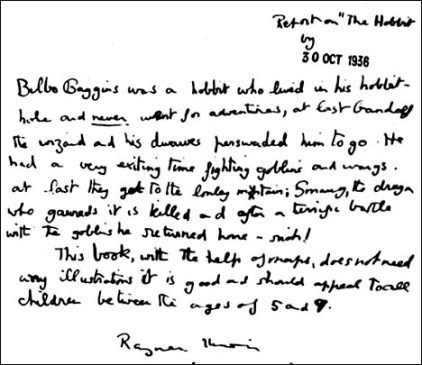 Report on "The Hobbit
by
30 OCT 1936
Bilbo Baggins was a hobbit who lived in his hobbit-
hole and never went for adventures, at last Gandalf
the wizard and his dwarves perswaded him to go. He
had a very exiting time fighting goblins and wargs.
at last they got to the lonley mountain; Smaug, the dragon
who gawreds it is killed and after a terrific battle
with the goblins he returned home - rich!
This book, with the help of maps, does not need
any illustrations it is good and should appeal to all
children between the ages of 5 and 9.
Rayner Unwin